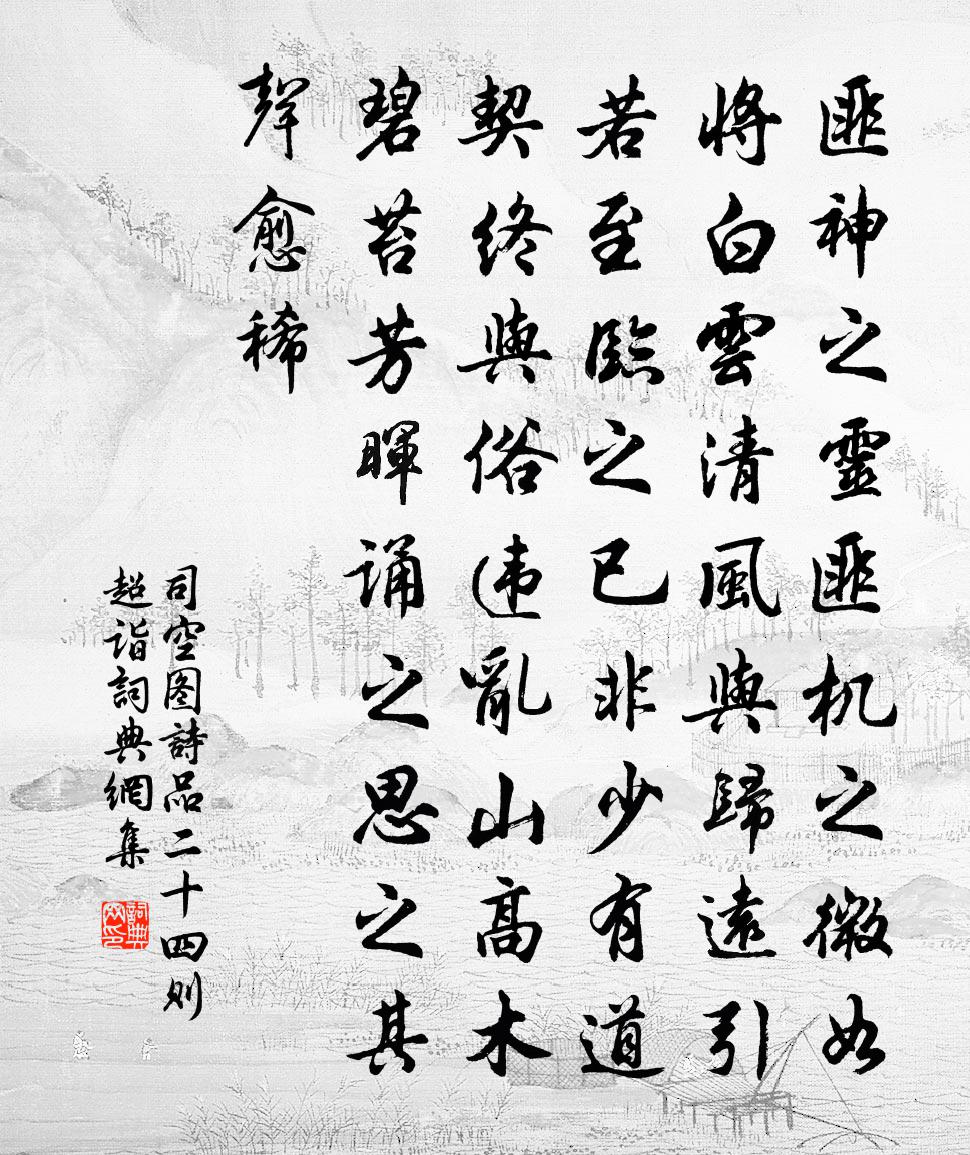 匪神之靈匪机之微如
將白雲清風與歸遠引
若至臨之已非少有道
契終與俗违亂山高木
碧苔芳暉誦之思之其
聲愈稀
司空图詩品二十四则
超诣詞典網集
詞典网印